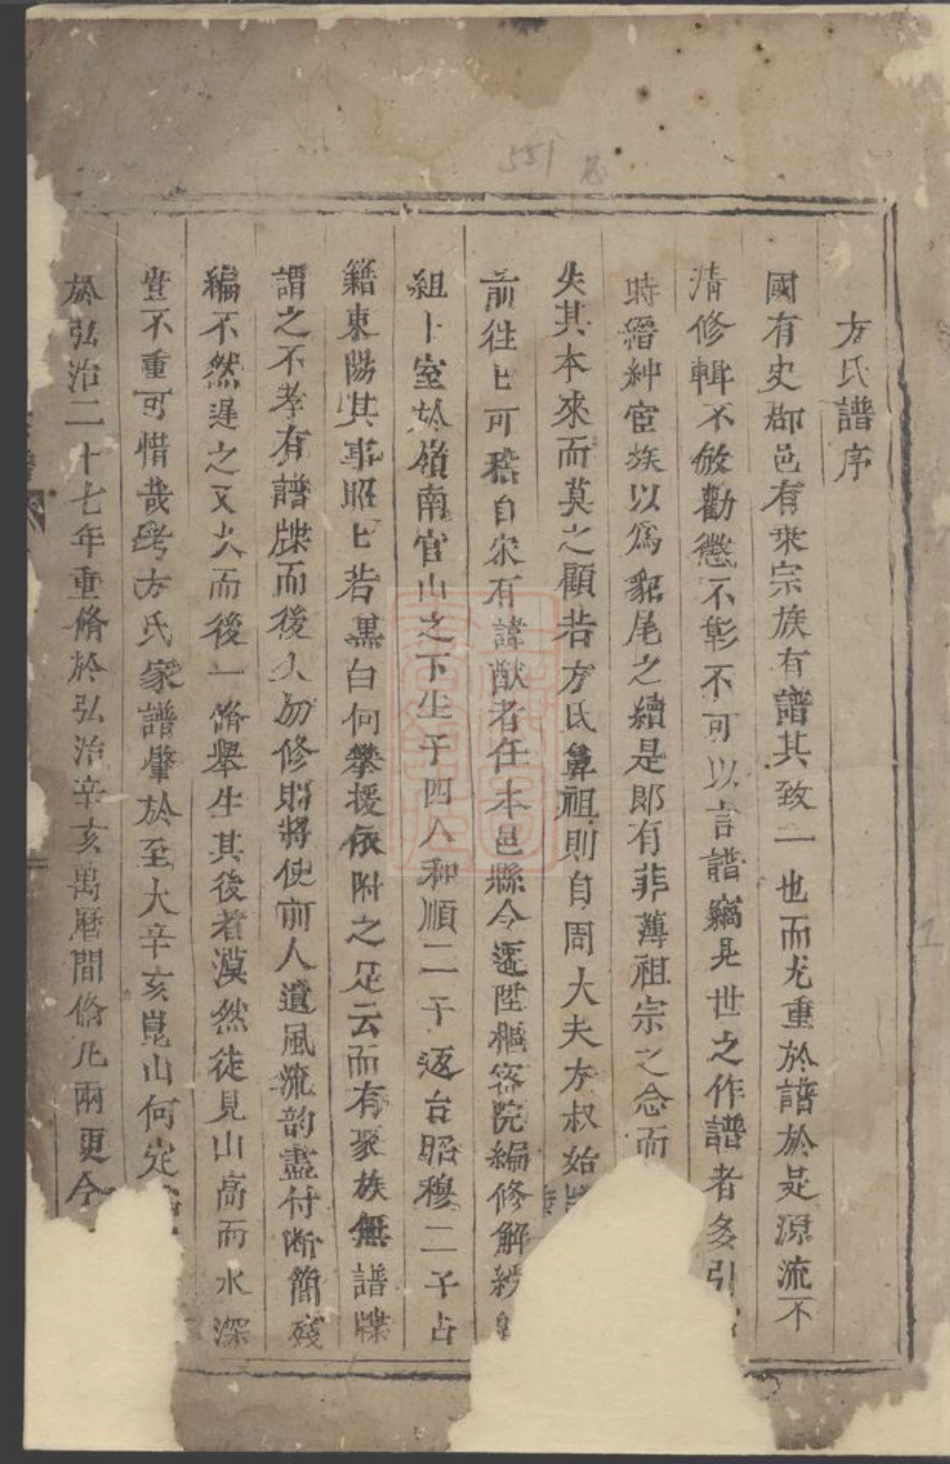 方氏譜序
國有史郡邑有乘宗族有譜其致一也而尤重於譜於是源流不
清修輯不敏勸懲不彰不可以言譜竊見世之作譜者多引
時縉紳宦族以為貂尾之續是郎有非薄祖宗之念而
失其本來而莫之顧若方氏鼻祖則自周大夫方叔始
前往匕可稽自宋有諱猷者任本邑縣令遷陞樞密院編修解綬
組卜室於嶺南官山之下生子四人和順二子返台昭穆二子占
籍東陽其事昭匕若黑白何攀援依附之足云而有聚族無譜牒
謂之不孝有譜牒而後人勿修則將使前人遺風流韵盡付斷簡殘
編不然遲之又久而後一脩舉生其後者漠然徒見山高而水深
豈不重可惜哉考方氏家譜肇於至大辛亥崑山何定
於弘治二十七年重脩於弘治辛亥萬曆間脩凡兩更今
551